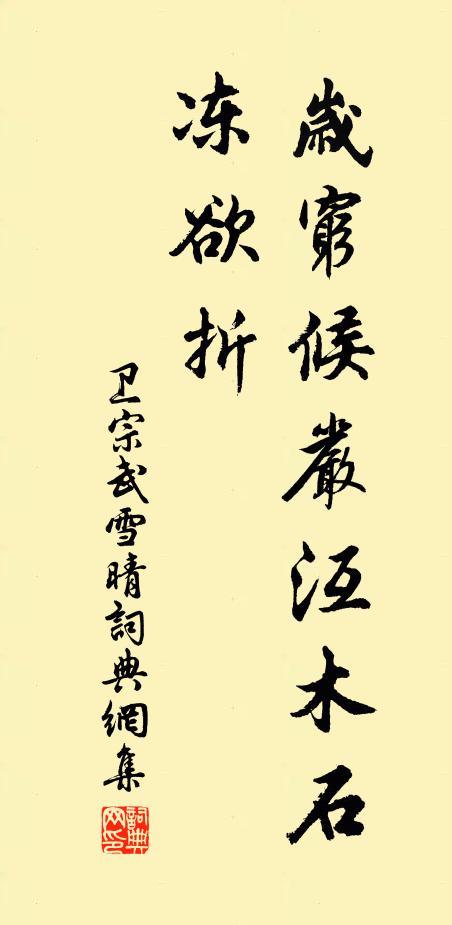 嵗窮候嚴沍木石
冻欲折
卫宗武雪晴詞典網集
詞典
网印